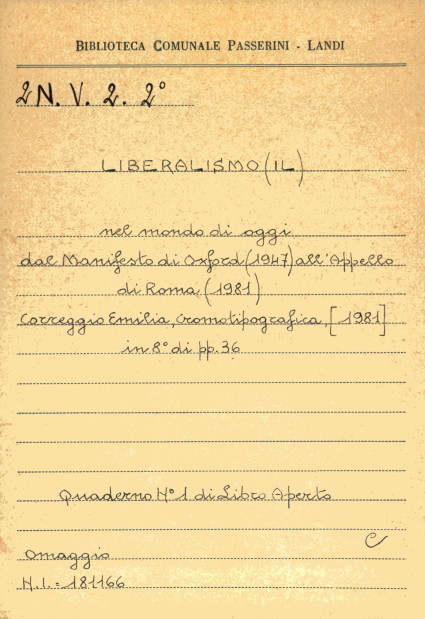 BIBLIOTECA COMUNALE PASSERINI - LANDI
2N. V. 2. 2°
LIBERALISMO (IL)
nel mondo di oggi
dal Manifesto di Oxford (1947) all'Appello
di Roma (1981)
Correggio Emilia, Cromotipografica, [1981]
in 8° di pp. 36
Quaderno N° 1 di Libro Aperto
C
Omaggio
N.I. = 181166